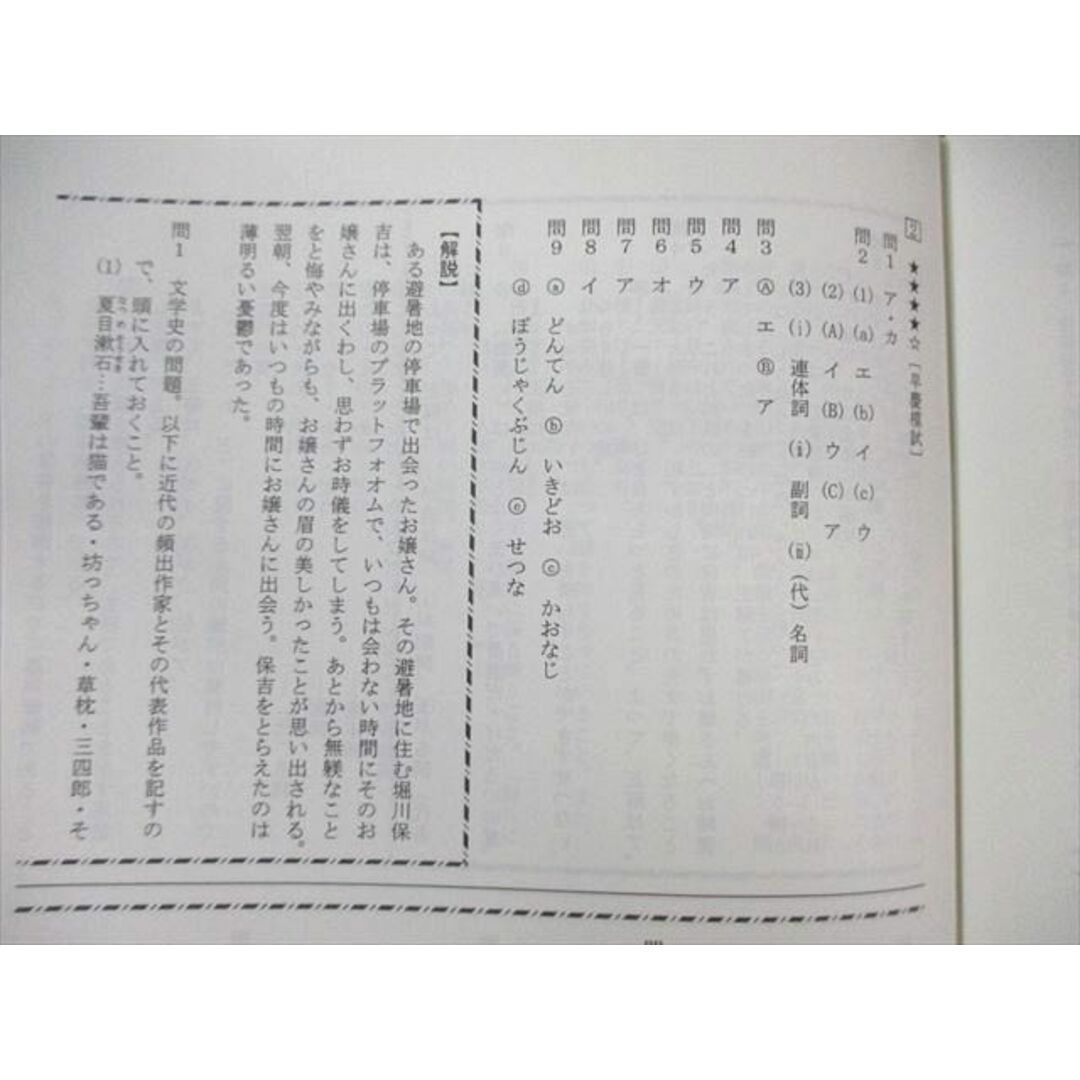 ★★★★☆〔早慶模試〕
問1 ア・カ
問2 (1) (a) エ (b) イ (c) ウ
(2) (A) イ (B) ウ (C) ア
(3) (ⅰ) 連体詞 (ⅱ) 副詞 (ⅲ) (代)名詞
問3 Ⓐ エ Ⓑ ア
問4 ア
問5 ウ
問6 オ
問7 ア
問8 イ
問9 ⓐ どんてん ⓑ いきどお ⓒ かおなじ
ⓓ ぼうじゃくぶじん ⓔ せつな
【解説】
ある避暑地の停車場で出会ったお嬢さん。その避暑地に住む堀川保
吉は、停車場のプラットフォオムで、いつもは会わない時間にそのお
嬢さんに出くわし、思わずお時儀をしてしまう。あとから無躾なこと
をと悔やみながらも、お嬢さんの眉の美しかったことが思い出される。
翌朝、今度はいつもの時間にお嬢さんに出会う。保吉をとらえたのは
薄明るい憂鬱であった。
問1 文学史の問題。以下に近代の頻出作家とその代表作品を記すの
で、頭に入れておくこと。
(1) 夏目漱石…吾輩は猫である・坊っちゃん・草枕・三四郎・そ